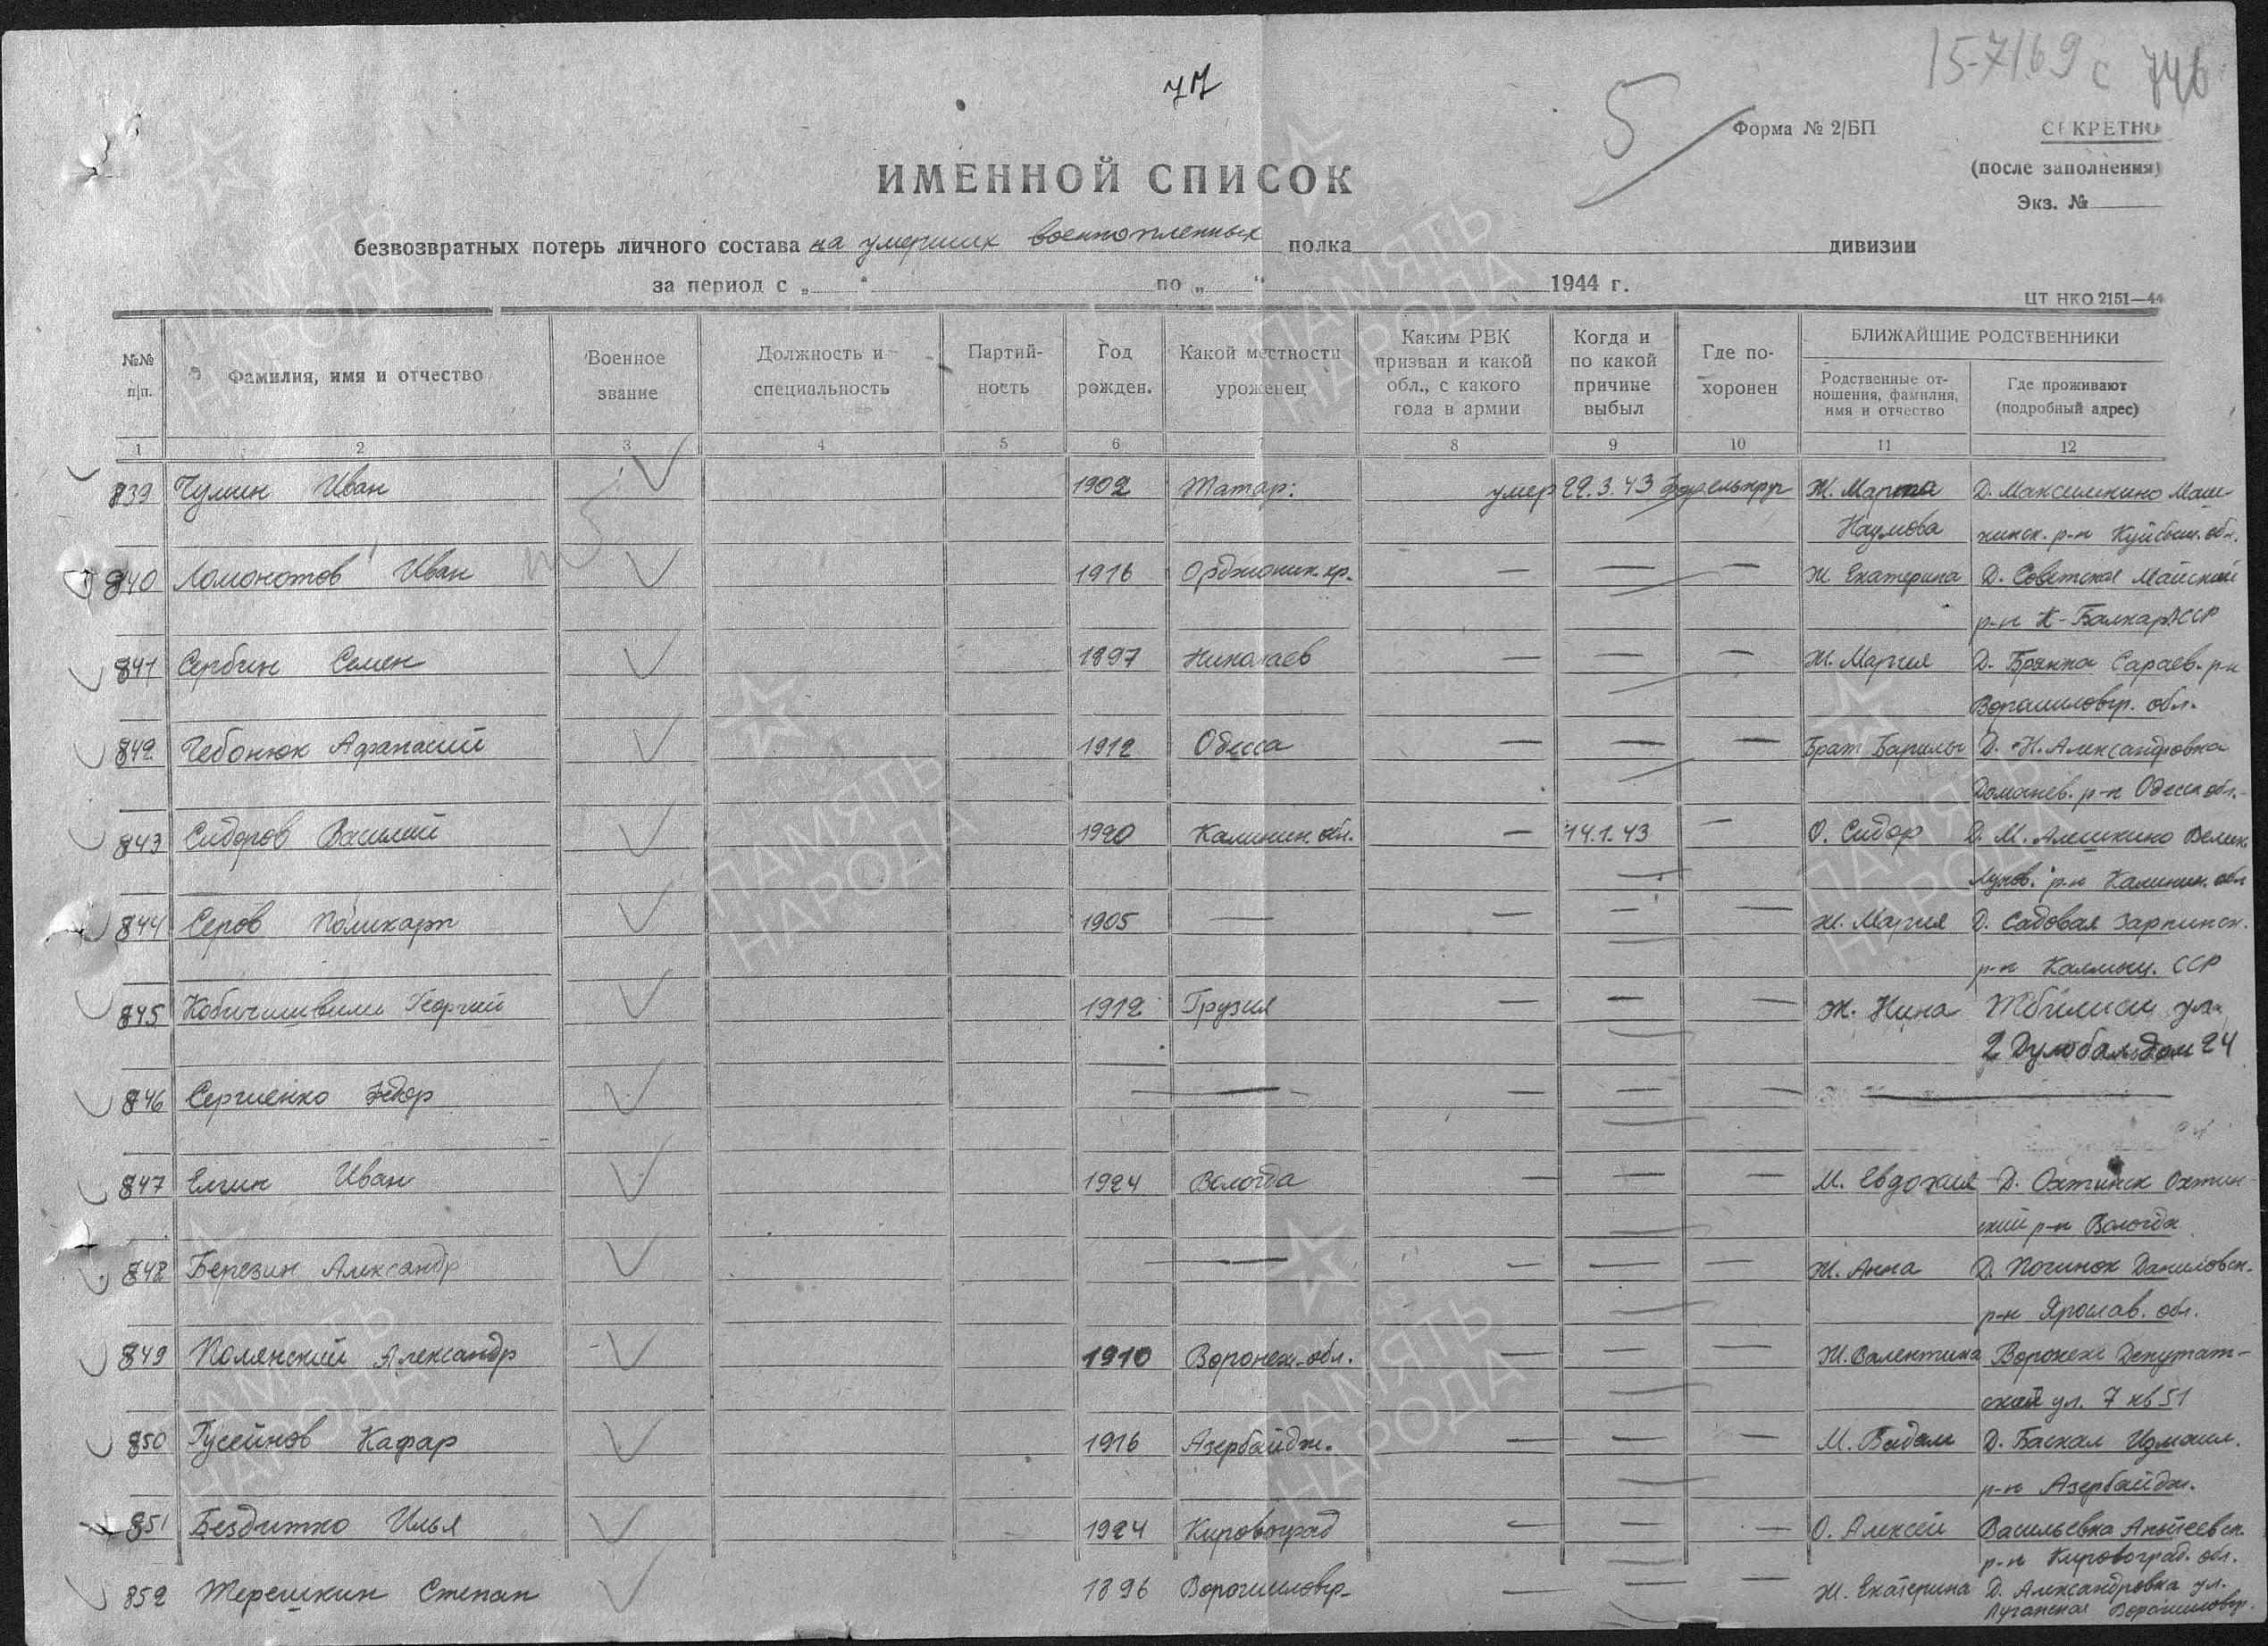 15-7169 с 746
77
5
Форма № 2/БП
СЕКРЕТНО
(после заполнения)
Экз. №
ИМЕННОЙ СПИСОК
безвозвратных потерь личного состава на умерших военнопленных полка дивизии
за период с „ “ по „ “ 1944 г.
ЦТ НКО 2151—44
№№ п/п. Фамилия, имя и отчество Военное звание Должность и специальность Партийность Год рожден. Какой местности уроженец Каким РВК призван и какой обл., с какого года в армии Когда и по какой причине выбыл Где похоронен БЛИЖАЙШИЕ РОДСТВЕННИКИ
Родственные отношения, фамилия, имя и отчество Где проживают (подробный адрес)
1 2 3 4 5 6 7 8 9 10 11 12
839 Чулин Иван 1902 Татар. умер 22.3.43 Ж. Марта Д. Максимкино Маш-
Наумова кинск. р-н Куйбыш. обл.
840 Ломонотов Иван 1916 Орджоник. кр. — — — Ж Екатерина Д. Советская Майский
р-н К-Балкар АССР
841 Сербин Семен 1897 Николаев — — — Ж. Мария Д. Брянка Сараев. р-н
Ворошиловгр. обл.
842 Чебонюк Афанасий 1912 Одесса — — — Брат Д. Н. Александровка
Доманев. р-н Одесск обл.
843 Сидоров Василий 1920 Калинин. обл. — 14.1.43 — О. Сидор Д. М. Алешкино Велик
Луков. р-н Калинин. обл
844 Серов Поликарп 1905 — — — — Ж. Мария Д. Садовая Сарпинск.
р-н Калмыц. ССР
845 Кобичишвили Георгий 1912 Грузия — — — Ж. Нина Тбилиси ул.
2 дом 24
846 Сергиенко Федор — — — — —
847 Елгин Иван 1924 Вологда — — — М. Евдокия Д. Охтинск Охтин-
ский р-н Вологда
848 Березин Александр — — — — Ж. Анна Д. Починок Даниловск.
р-н Ярослав. обл.
849 Полянский Александр 1910 Воронеж. обл. — — — Ж. Валентина Воронеж Депутат-
ская ул. 7 кв 51
850 Гусейнов Кафар 1916 Азербайдж. — — — М. Д. Баскал Измаил.
р-н Азербайдж.
851 Бездитко Илья 1924 Кировоград — — — О. Алексей Васильевка
р-н Кировоград. обл.
852 Терешкин Степан 1896 Ворошиловгр. — — — Ж. Екатерина Д. Александровка ул.
Луганская Ворошиловгр.
ПАМЯТЬ
НАРОДА